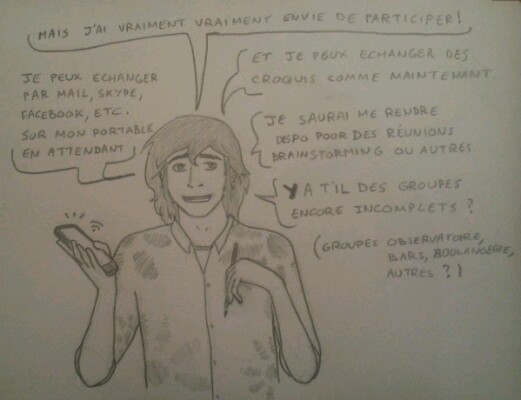 MAIS J'AI VRAIMENT VRAIMENT ENVIE DE PARTICIPER!
JE PEUX ECHANGER
PAR MAIL, SKYPE,
FACEBOOK, ETC.
SUR MON PORTABLE
EN ATTENDANT
ET JE PEUX ECHANGER DES
CROQUIS COMME MAINTENANT.
JE SAURAI ME RENDRE
DISPO POUR DES RÉUNIONS
BRAINSTORMING OU AUTRES.
Y A T'IL DES GROUPES
ENCORE INCOMPLETS ?
(GROUPES OBSERVATOIRE,
BARS, BOULANGERIE,
AUTRES ?)